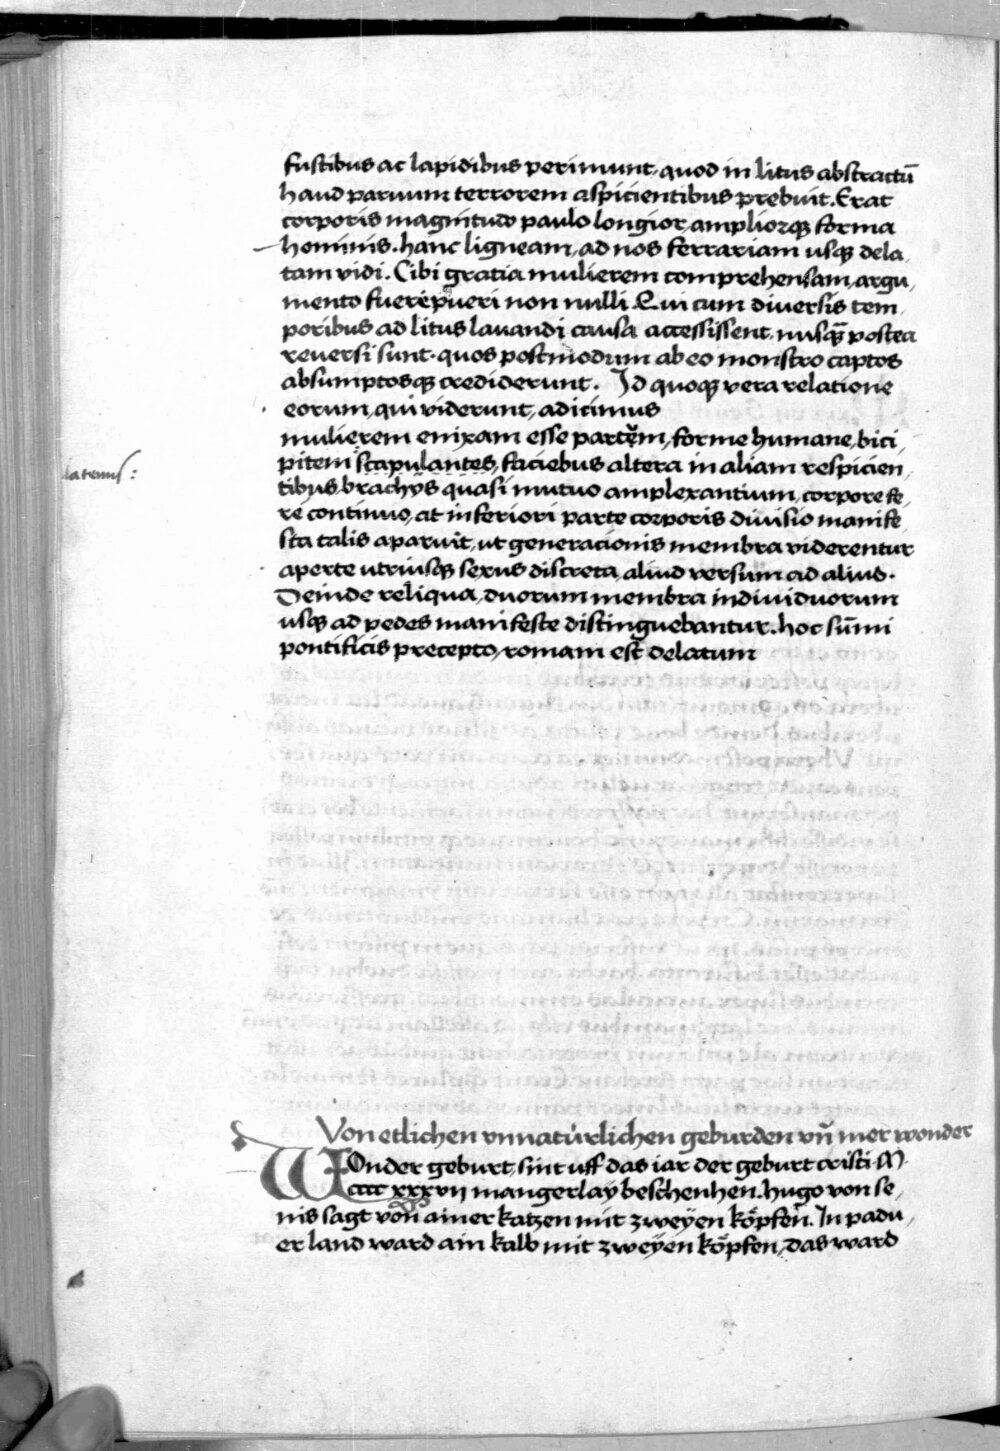 fustibus ac lapidibus perimunt, quod in litus abstractū
haud paruum terrorem aspicientibus prebuit. Erat
corporis magnitudo paulo longior, ampliorqȝ forma
hominis. hanc ligneam, ad nos ferrariam usqȝ dela,
tam vidi. Cibi gratia mulierem comprehensam, argu,
mento fuere pueri non nulli. Qui cum diversis tem,
poribus ad litus lavandi causa accessissent, nusqȝ̄ postea
reversi sunt. quos postmodum ab eo monstro captos
absumptosqȝ crediderunt. Id quoqȝ vera relatione
eorum, qui viderunt, adicimus
mulierem enixam esse partum, forme humane, bici,
pitem scapulantes, faciebus altera in aliam respicien,
latenus:
tibus, brachÿs quasi mutuo amplexantium, corpore fe,
re continuo, at inferiori parte corporis divisio manife,
sta talis aparuit, ut generacionis membra viderentur
aperte utriusqȝ sexus discreta, aliud versum ad aliud.
Deinde reliqua, duorum membra individuorum
usqȝ ad pedes manifeste distinguebantur. hoc sūmi
pontificis precepto, romam est delatum
Von etlichen vnnatúrlichen geburden vn̄ mer wonder
WOnder geburt, sint uff das iar der geburt cristi M.
cccc xxxvii mangerlaÿ beschenhen. hugo von se,
nis sagt von ainer katzen mit zweÿen kőpfen. In padu,
er land ward ain kalb mit zweÿen kőpfen, das ward